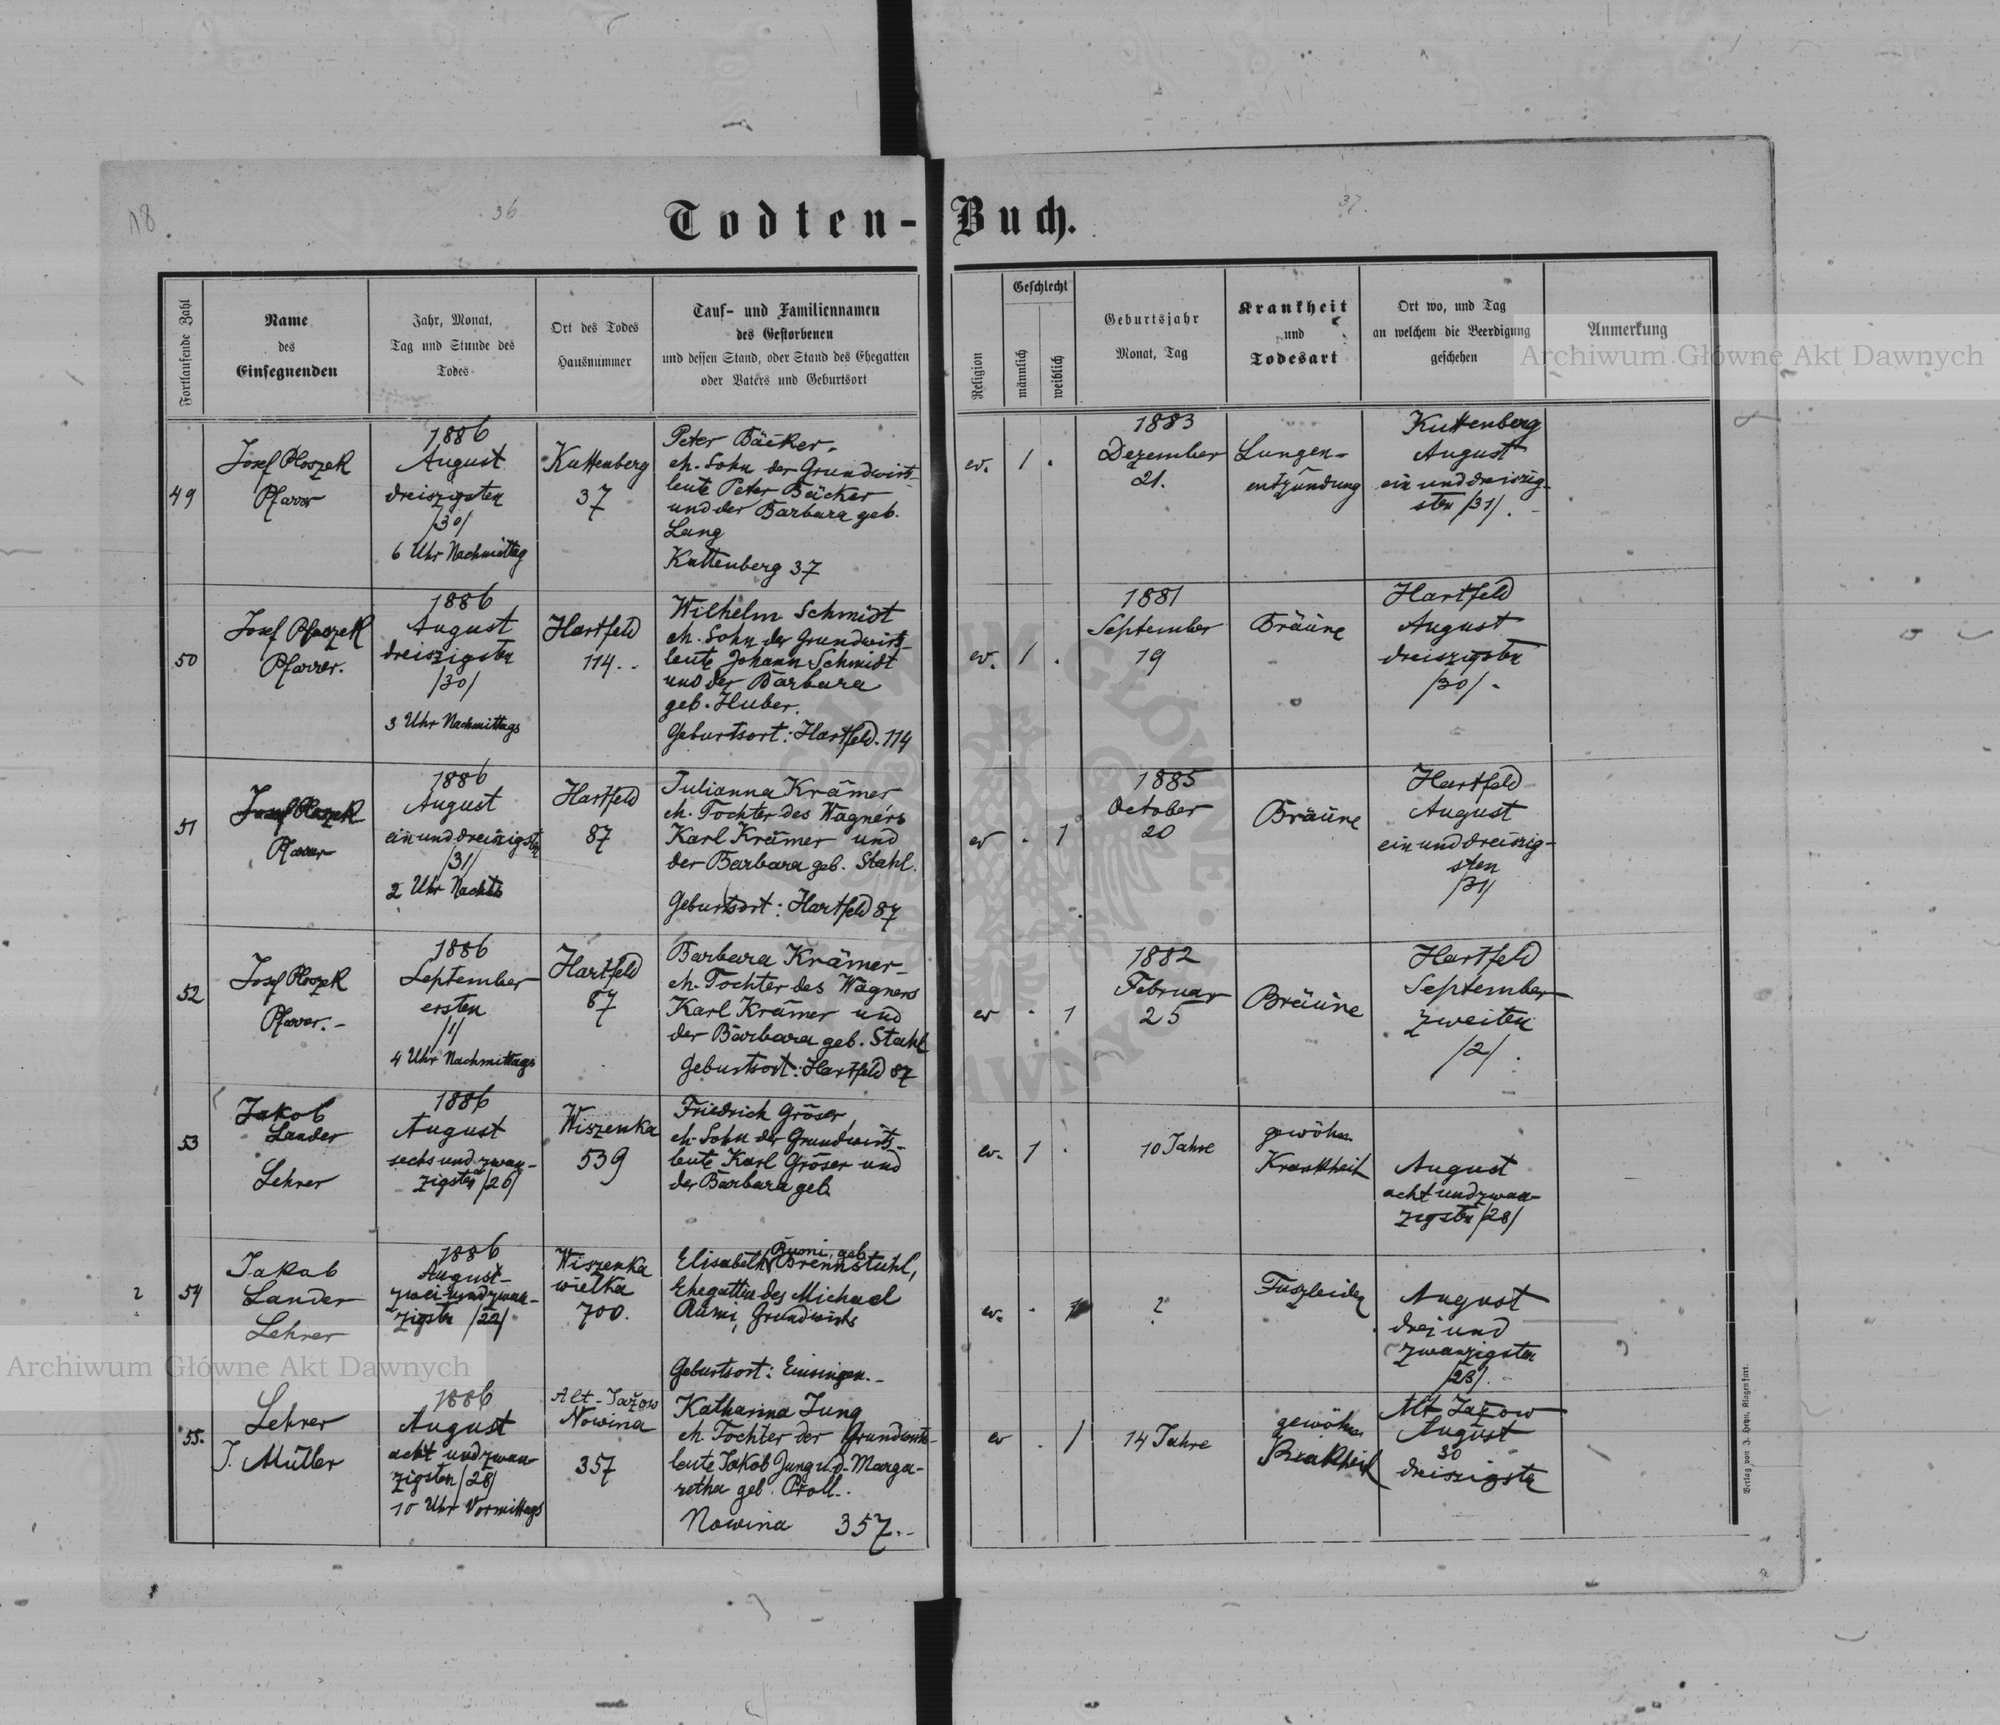 18
36
37.
Todten-Buch.
Fortlaufende Zahl
Name
des
Einsegnenden
Jahr, Monat,
Tag und Stunde des
Todes
Ort des Todes
Hausnummer
Tauf- und Familiennamen
des Gestorbenen
und dessen Stand, oder Stand des Ehegatten
oder Vaters und Geburtsort
Religion
Geschlecht
männlich
weiblich
Geburtsjahr
Monat, Tag
Krankheit
und
Todesart
Ort wo, und Tag
an welchem die Beerdigung
geschehen
Anmerkung
Archiwum Główne Akt Dawnych
49
Josef Ploszek
Pfarrer
1886
August
dreiszigsten
/30/
6 Uhr Nachmittag
Kuttenberg
37
Peter Bäcker,
eh. Sohn der Grundwirts-
leute Peter Bäcker
und der Barbara geb.
Lang
Kuttenberg 37
ev.
1
.
1883
Dezember
21.
Lungen-
entzündung
Kuttenberg
August
ein und dreiszig-
sten /31/.
50
Josef Ploszek
Pfarrer.
1886
August
dreiszigsten
/30/
3 Uhr Nachmittags
Hartfeld
114..
Wilhelm Schmidt
eh. Sohn der Grundwirts-
leute Johann Schmidt
und der Barbara
geb. Huber.
Geburtsort: Hartfeld. 114
ev.
1
.
1881
September
19
Bräune
Hartfeld
August
dreiszigsten
/30/.
51
Josef Ploszek
Pfarrer
1886
August
ein und dreiszigsten
/31/
2 Uhr Nachts
Hartfeld
87
Julianna Krämer
eh. Tochter des Wagners
Karl Krämer und
der Barbara geb. Stahl.
Geburtsort: Hartfeld 87
ev
.
1
1885
October
20
Bräune
Hartfeld
August
ein und dreiszig-
sten
/31/
52
Josef Ploszek
Pfarrer.-
1886
September
ersten
/1/
4 Uhr Nachmittags
Hartfeld
87
Barbara Krämer-
eh. Tochter des Wagners
Karl Krämer und
der Barbara geb. Stahl
Geburtsort: Hartfeld 87
ev
.
1
1882
Februar
25
Bräune
Hartfeld
September
zweiten
/2/.
53
Jakob
Lander
Lehrer
1886
August
sechs und zwan-
zigsten /26/
Wiszenka
539
Friedrich Gröser,
eh. Sohn der Grundwirts-
leute Karl Gröser und
der Barbara geb.
ev.
1
.
10 Jahre
gewöhn.
Krankheit
August
acht und zwan-
zigsten /28/
?
54
Jakob
Lander
Lehrer
1886
August-
zwei und zwan-
zigsten /22/
Wiszenka
wielka
700.
Rumi, geb.
Elisabeth Brennstuhl,
Ehegattin des Michael
Rumi, Grundwirts
Geburtsort: Einsingen.-
ev.
.
1
?
Fuszleiden
August
drei und
zwanzigsten
/23/.
55.
Lehrer
J. Müller
1886
August
acht und zwan-
zigsten /28/
10 Uhr Vormittags
Alt-Jažow
Nowina
357
Katharina Jung
eh. Tochter der Grundwirts-
leute Jakob Jung u.d. Marga-
retha geb. Proll.
Nowina 357.-
ev
.
1
14 Jahre
gewöhn.
Krankheit
Alt Jažow
August
30
dreiszigsten
Archiwum Główne Akt Dawnych
Verlag von J. Heyn, Klagenfurt.